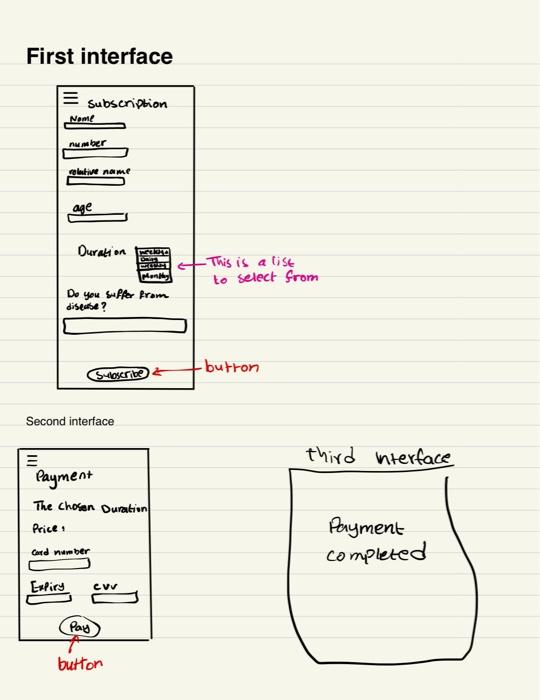 First interface
Subscription
Name
number
relative name
age
Duration
weekly
Daily
weekly
Monthly
This is a list
to select from
Do you suffer from
disease?
Subscribe
button
Second interface
Payment
The chosen Duration
Price:
Card number
Expiry CVV
Pay
button
third interface
Payment
completed